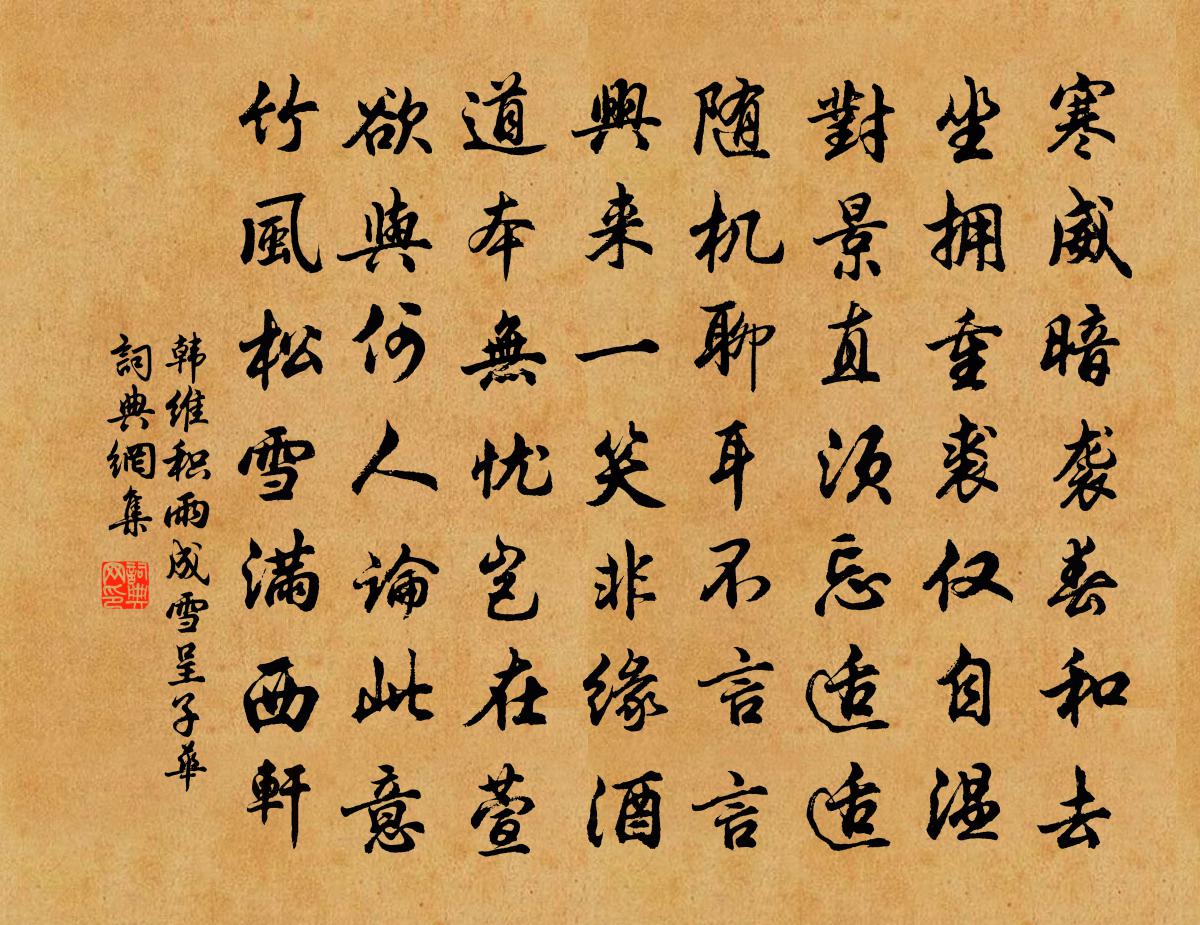 寒威暗袭春和去
坐拥重裘仅自温
對景直须忘适适
随机聊耳不言言
興来一笑非缘酒
道本無忧岂在萱
欲與何人論此意
竹風松雪满西軒
韩维积雨成雪呈子華
詞典網集
詞典网印